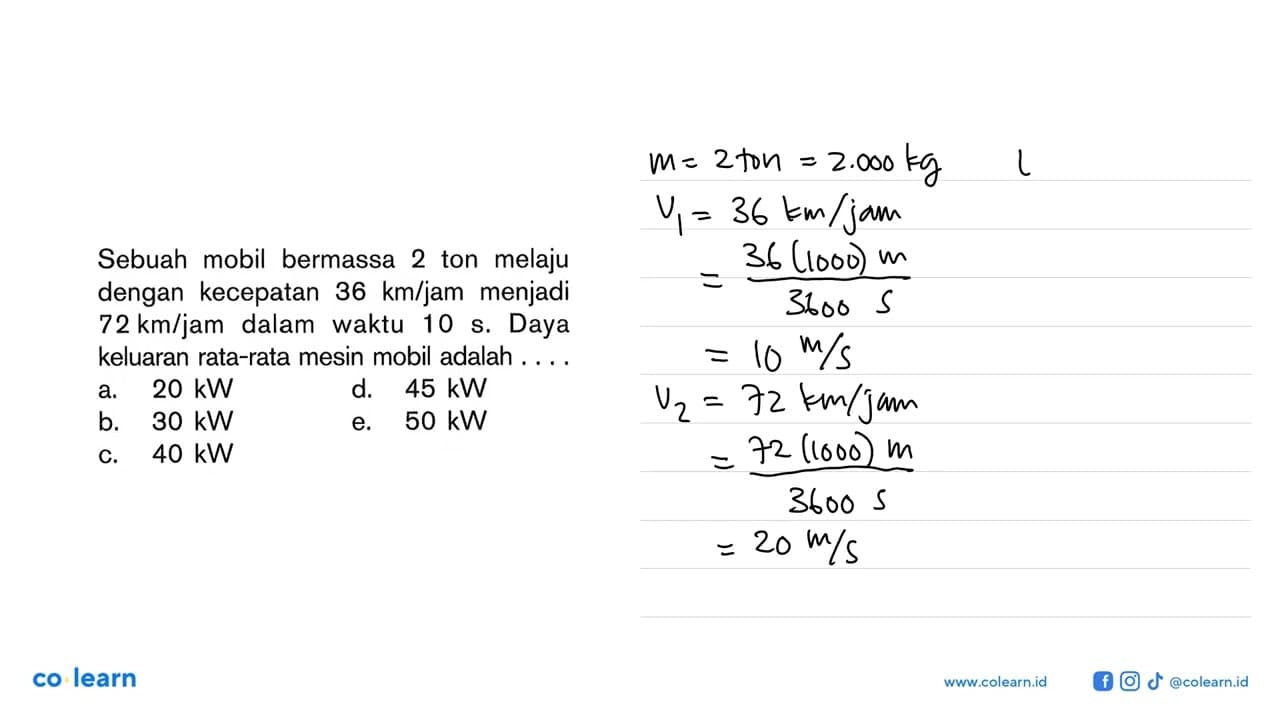 Sebuah mobil bermassa 2 ton melaju
dengan kecepatan 36 km/jam menjadi
72 km/jam dalam waktu 10 s. Daya
keluaran rata-rata mesin mobil adalah . . . .
a. 20 kW d. 45 kW
b. 30 kW e. 50 kW
c. 40 kW
m = 2 ton = 2.000 kg l
V₁ = 36 km/jam
= 36 (1000) m
3600 s
= 10 m/s
V₂ = 72 km/jam
= 72 (1000) m
3600 s
= 20 m/s
co learn
www.colearn.id @colearn.id